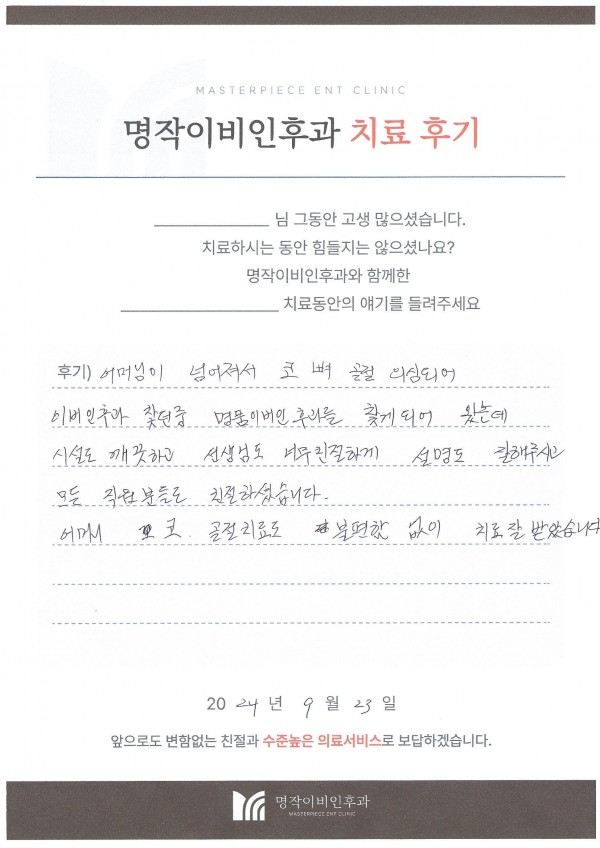 MASTERPIECE ENT CLINIC
명작이비인후과 치료 후기
님 그동안 고생 많으셨습니다.
치료하시는 동안 힘들지는 않으셨나요?
명작이비인후과와 함께한
치료동안의 얘기를 들려주세요
후기) 어머님이 넘어져서 코 뼈 골절 의심되어
이비인후과 찾던중 명품이비인후과를 찾게되어 왔는데
시설도 깨끗하고 선생님도 너무친절하게 설명도 잘해주시고
모든 직원분들도 친절하셨습니다.
어머니 코 골절치료도 불편함 없이 치료잘 받았습니다
2024년 9월 23일
앞으로도 변함없는 친절과 수준높은 의료서비스로 보답하겠습니다.
명작이비인후과
MASTERPIECE ENT CLINIC